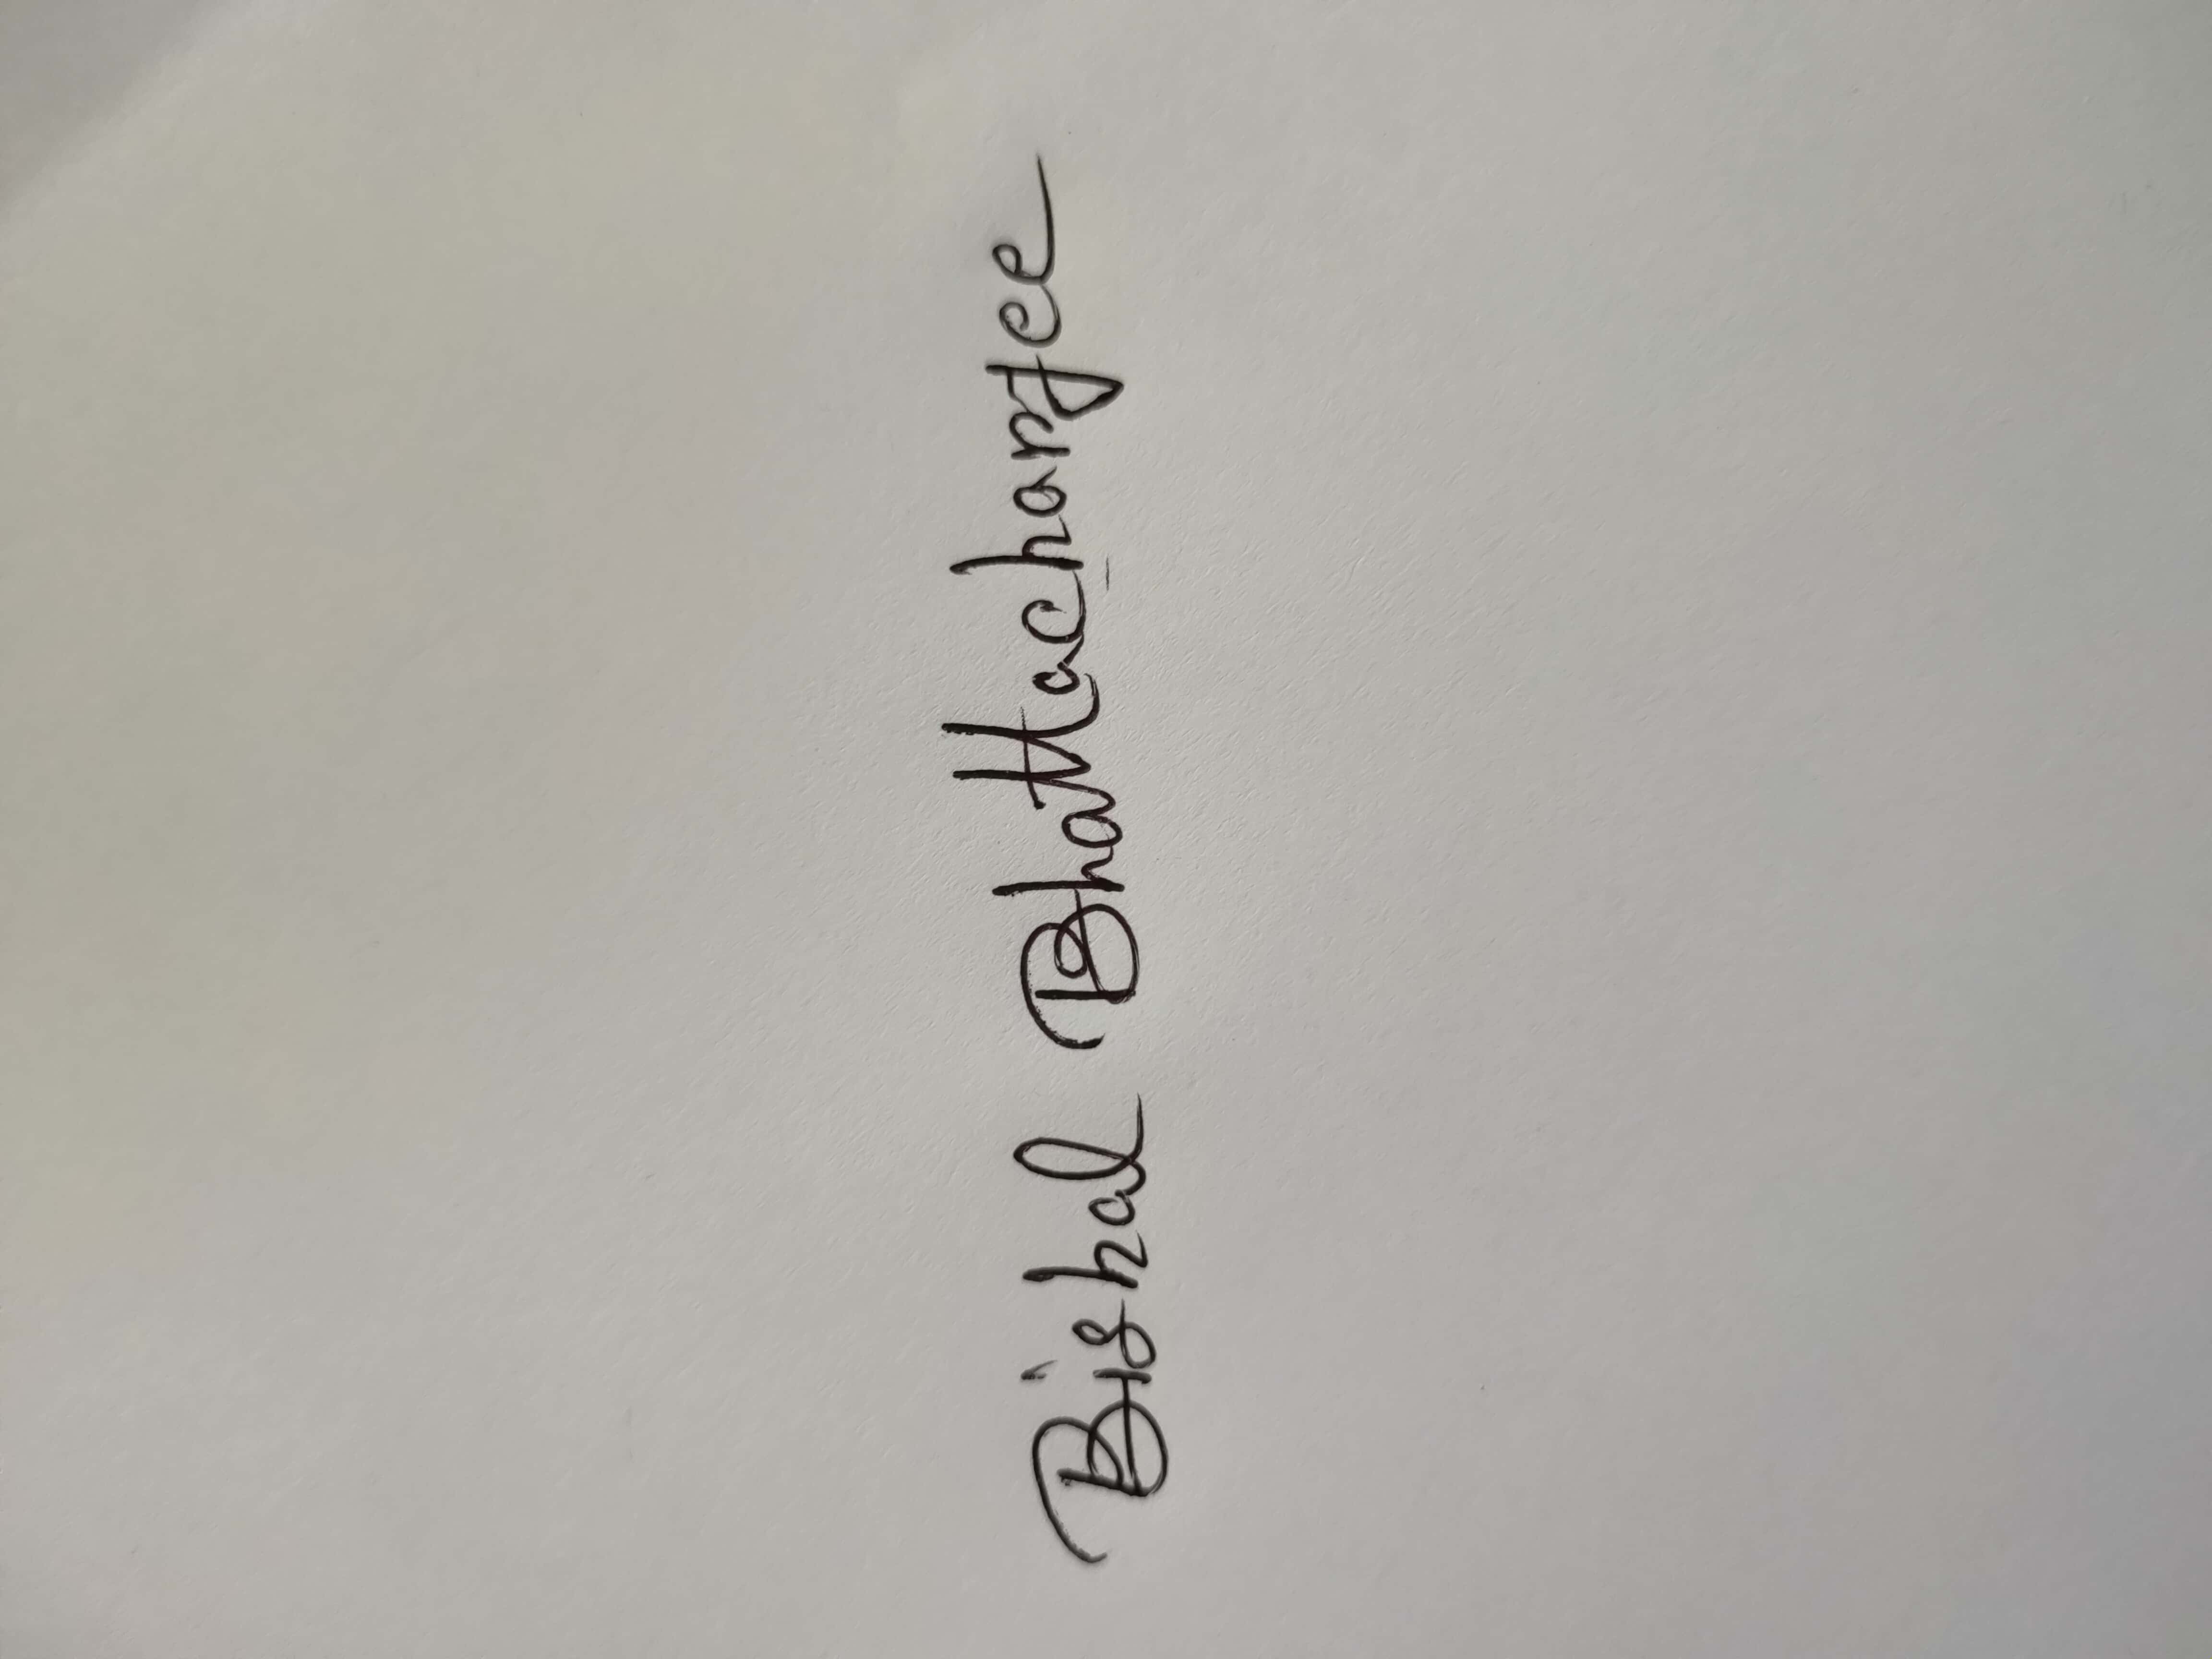 Bishal Bhattacharjee